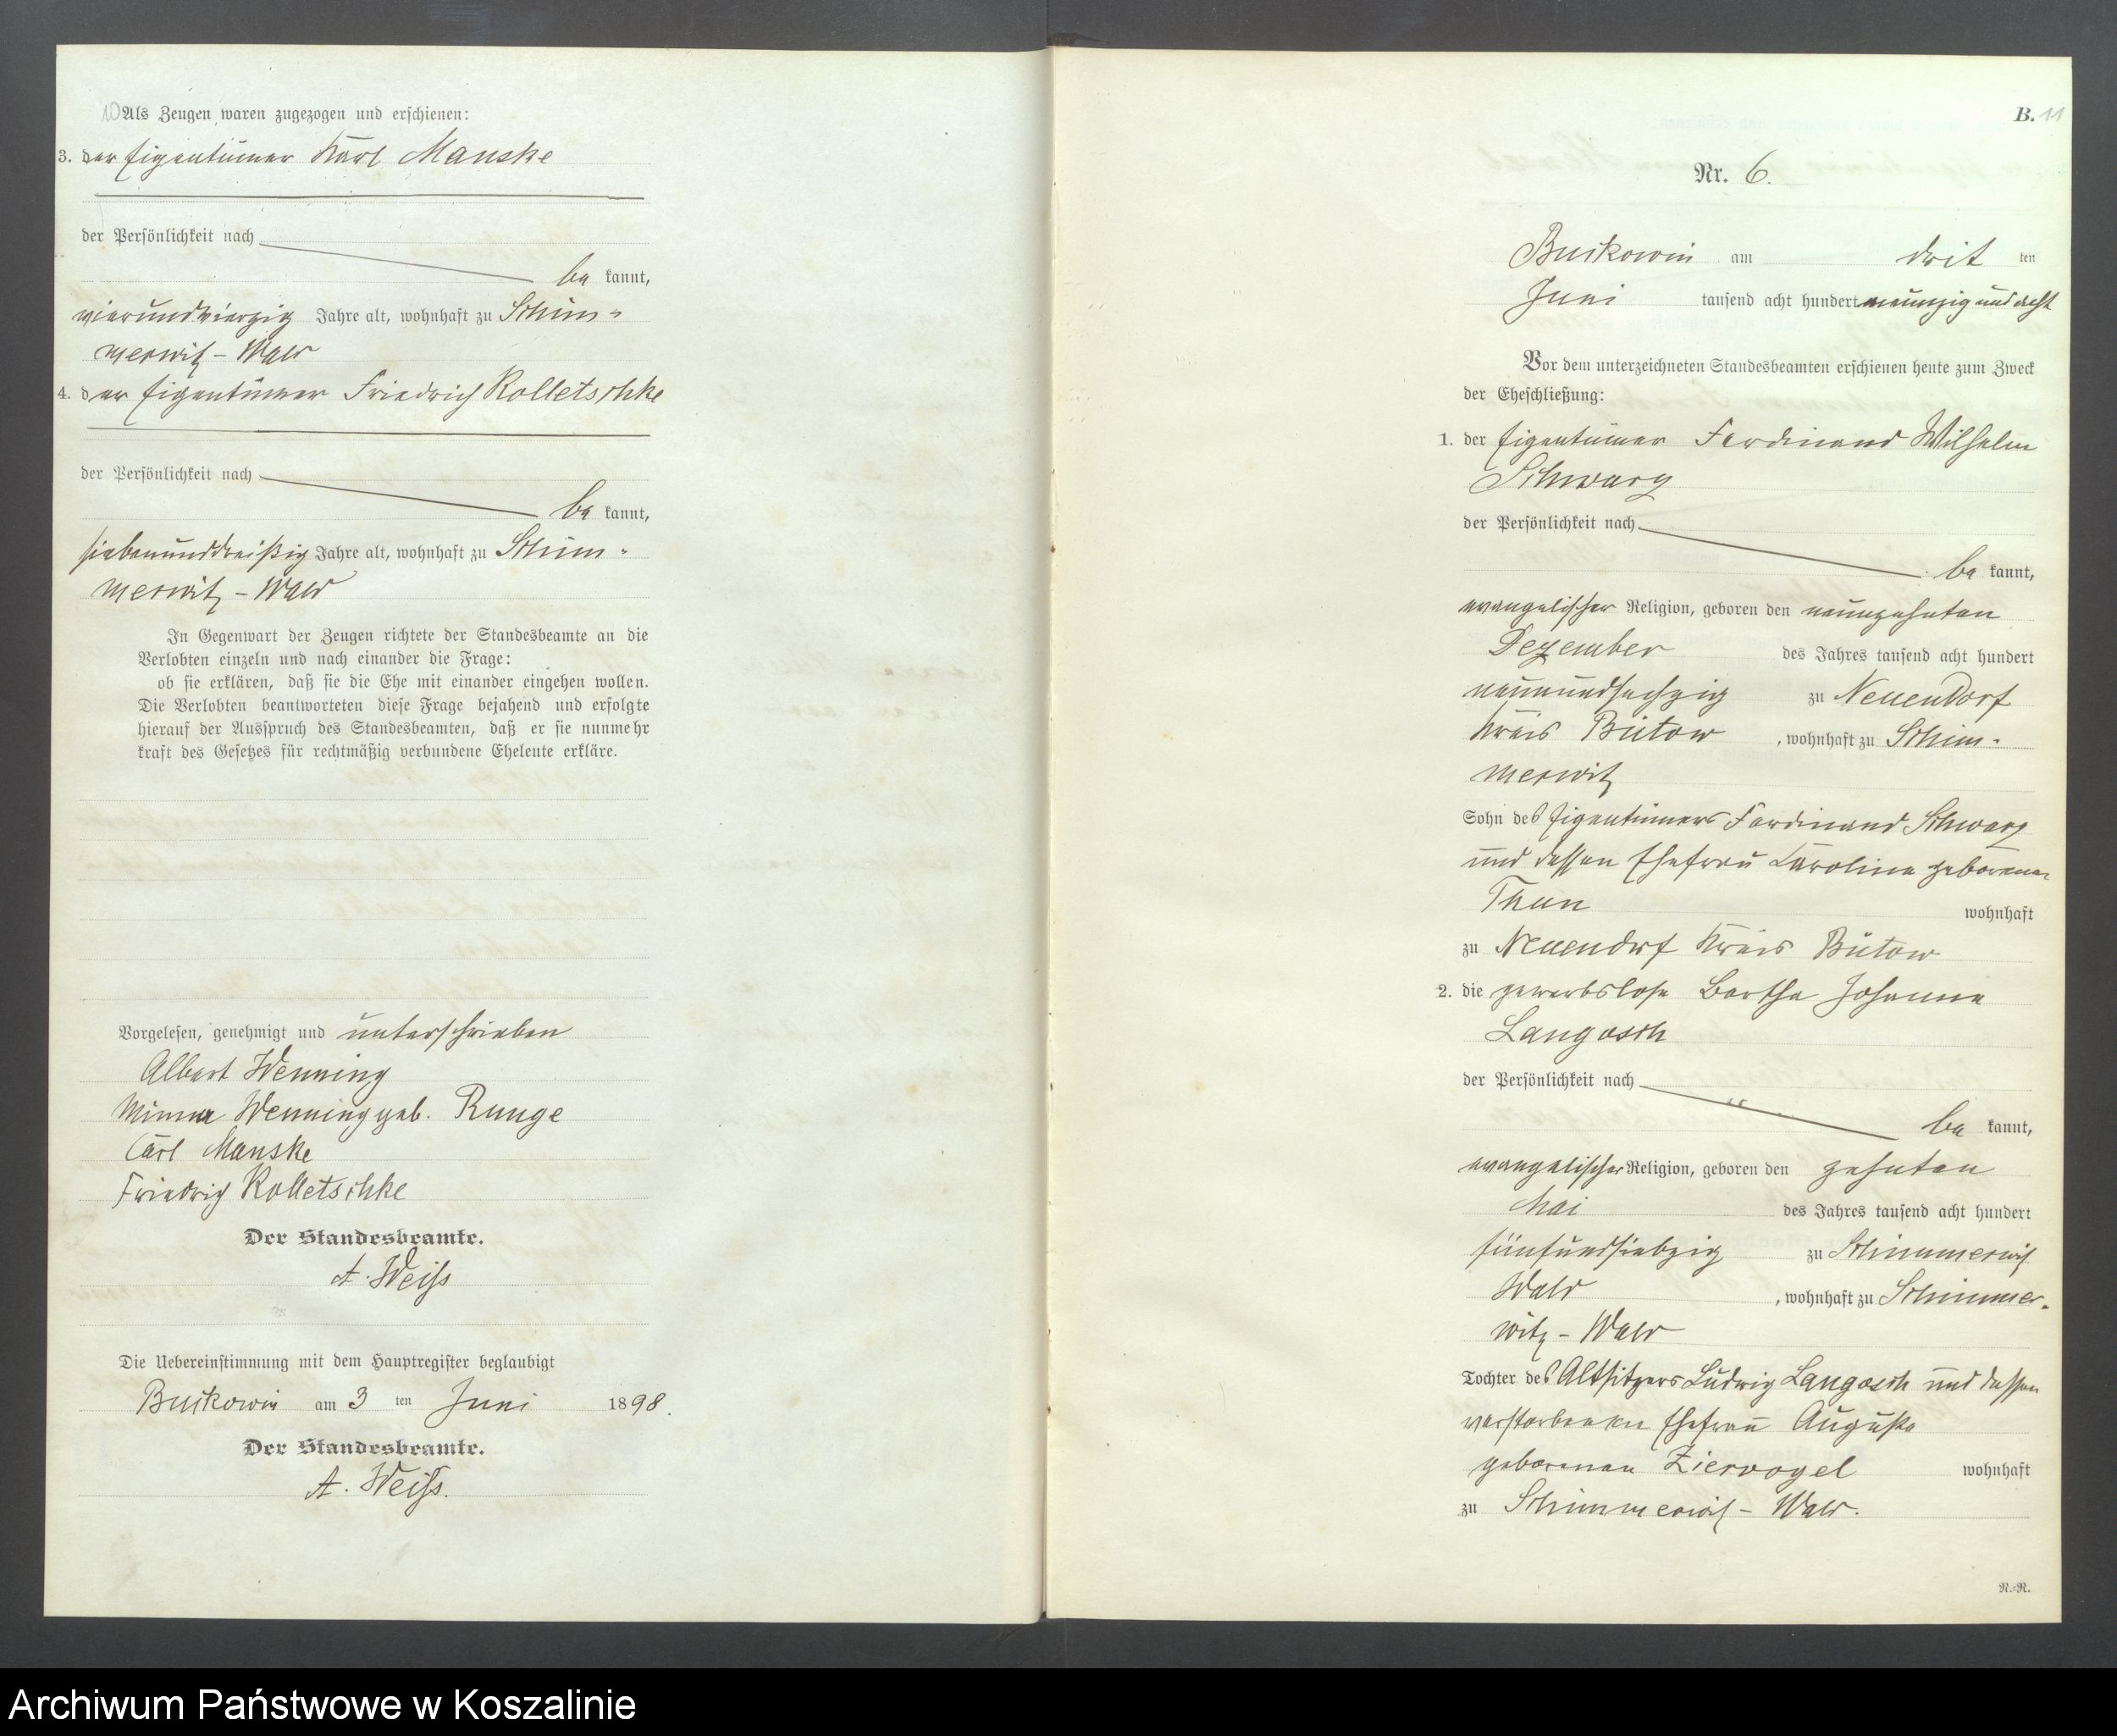 10
Als Zeugen waren zugezogen und erschienen:
3. der Eigentümer Karl Manske
der Persönlichkeit nach
be kannt,
vierundvierzig Jahre alt, wohnhaft zu Schim-
merwitz-Wald
4. der Eigentümer Friedrich Kolletschke
der Persönlichkeit nach
be kannt,
siebenunddreißig Jahre alt, wohnhaft zu Schim-
merwitz-Wald
In Gegenwart der Zeugen richtete der Standesbeamte an die
Verlobten einzeln und nach einander die Frage:
ob sie erklären, daß sie die Ehe mit einander eingehen wollen.
Die Verlobten beantworteten diese Frage bejahend und erfolgte
hierauf der Ausspruch des Standesbeamten, daß er sie nunmehr
kraft des Gesetzes für rechtmäßig verbundene Eheleute erkläre.
Vorgelesen, genehmigt und unterschrieben
Albert Wenning
Minna Wenning geb. Runge
Carl Manske
Friedrich Kolletschke
Der Standesbeamte.
A. Weiss
Die Uebereinstimmung mit dem Hauptregister beglaubigt
Buckowin am 3 ten Juni 1898.
Der Standesbeamte.
A. Weiss.
B. 11
Nr. 6.
Buckowin am drit ten
Juni tausend acht hundert neunzig und acht
Vor dem unterzeichneten Standesbeamten erschienen heute zum Zweck
der Eheschließung:
1. der Eigentümer Ferdinand Wilhelm
Schwarz
der Persönlichkeit nach
be kannt,
evangelischer Religion, geboren den neunzehnten
Dezember des Jahres tausend acht hundert
neunundsechzig zu Neuendorf
Kreis Bütow, wohnhaft zu Schim-
merwitz
Sohn des Eigentümers Ferdinand Schwarz
und dessen Ehefrau Karoline geborener
Thun wohnhaft
zu Neuendorf Kreis Bütow
2. die gewerbslose Bertha Johanna
Langosch
der Persönlichkeit nach
be kannt,
evangelischer Religion, geboren den zehnten
Mai des Jahres tausend acht hundert
fünfundsiebzig zu Schimmerwitz
Wald, wohnhaft zu Schimmer-
witz-Wald
Tochter des Altsitzers Ludwig Langosch und dessen
verstorbenen Ehefrau Auguste
geborenen Ziervogel wohnhaft
zu Schimmerwitz-Wald.
N.-R.
Archiwum Państwowe w Koszalinie